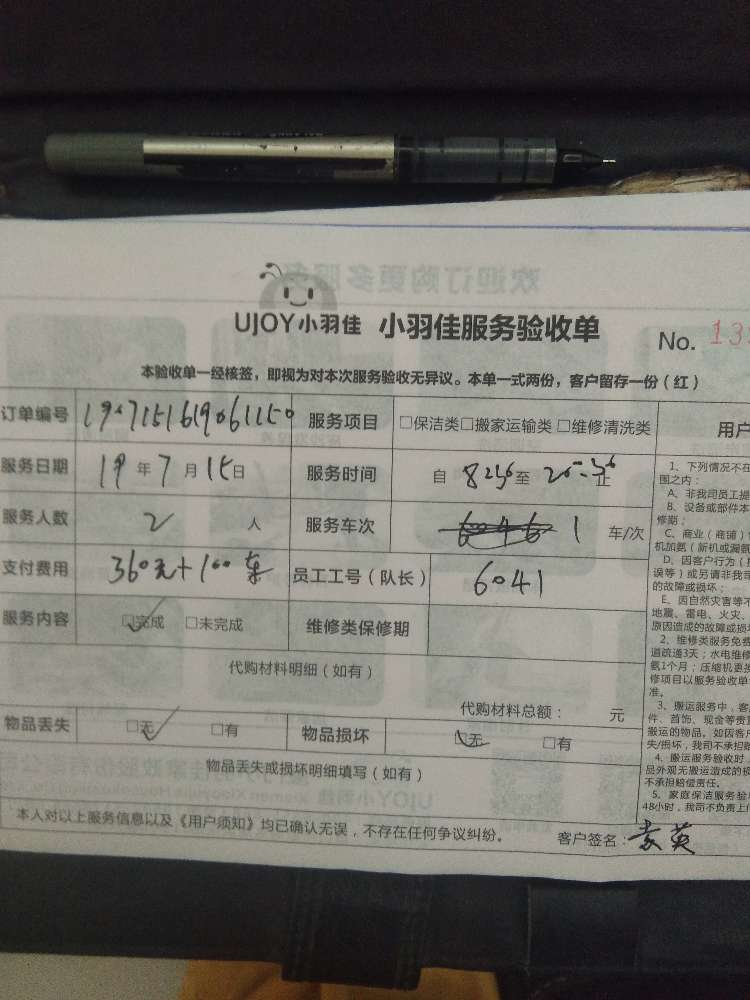 UJOY小羽佳 小羽佳服务验收单
No. 13
本验收单一经核签，即视为对本次服务验收无异议。本单一式两份，客户留存一份（红）
订单编号 服务项目 □保洁类□搬家运输类 □维修清洗类
服务日期 19年7月15日 服务时间 自 至 止
服务人数 2 人 服务车次 1 车/次
支付费用 360元+100车 员工工号（队长） 6041
服务内容 □完成 □未完成 维修类保修期
代购材料明细（如有）
代购材料总额： 元
物品丢失 □无 □有 物品损坏 □无 □有
物品丢失或损坏明细填写（如有）
本人对以上服务信息以及《用户须知》均已确认无误，不存在任何争议纠纷。 客户签名：袁英
用户
1、下列情况不在
围之内：
A、非我司员工提
B、设备或部件本
修期；
C、商业（商铺）
机加氨（新机或漏氨
D、因客户行为（
误等）或另请非我司
的故障或损坏；
E、因自然灾害等不
地震、雷电、火灾、
原因造成的故障或损坏
2、维修类服务免费
道疏通3天；水电维修
氨1个月；压缩机更换
修项目以服务验收单
准。
3、搬运服务中，客
件、首饰、现金等贵重
搬运的物品。如因客户
失/损坏，我司不承担赔
4、搬运服务验收时，
品外观无搬运造成的损
不承担赔偿责任。
5、家庭保洁服务验收
48小时，我司不负责上